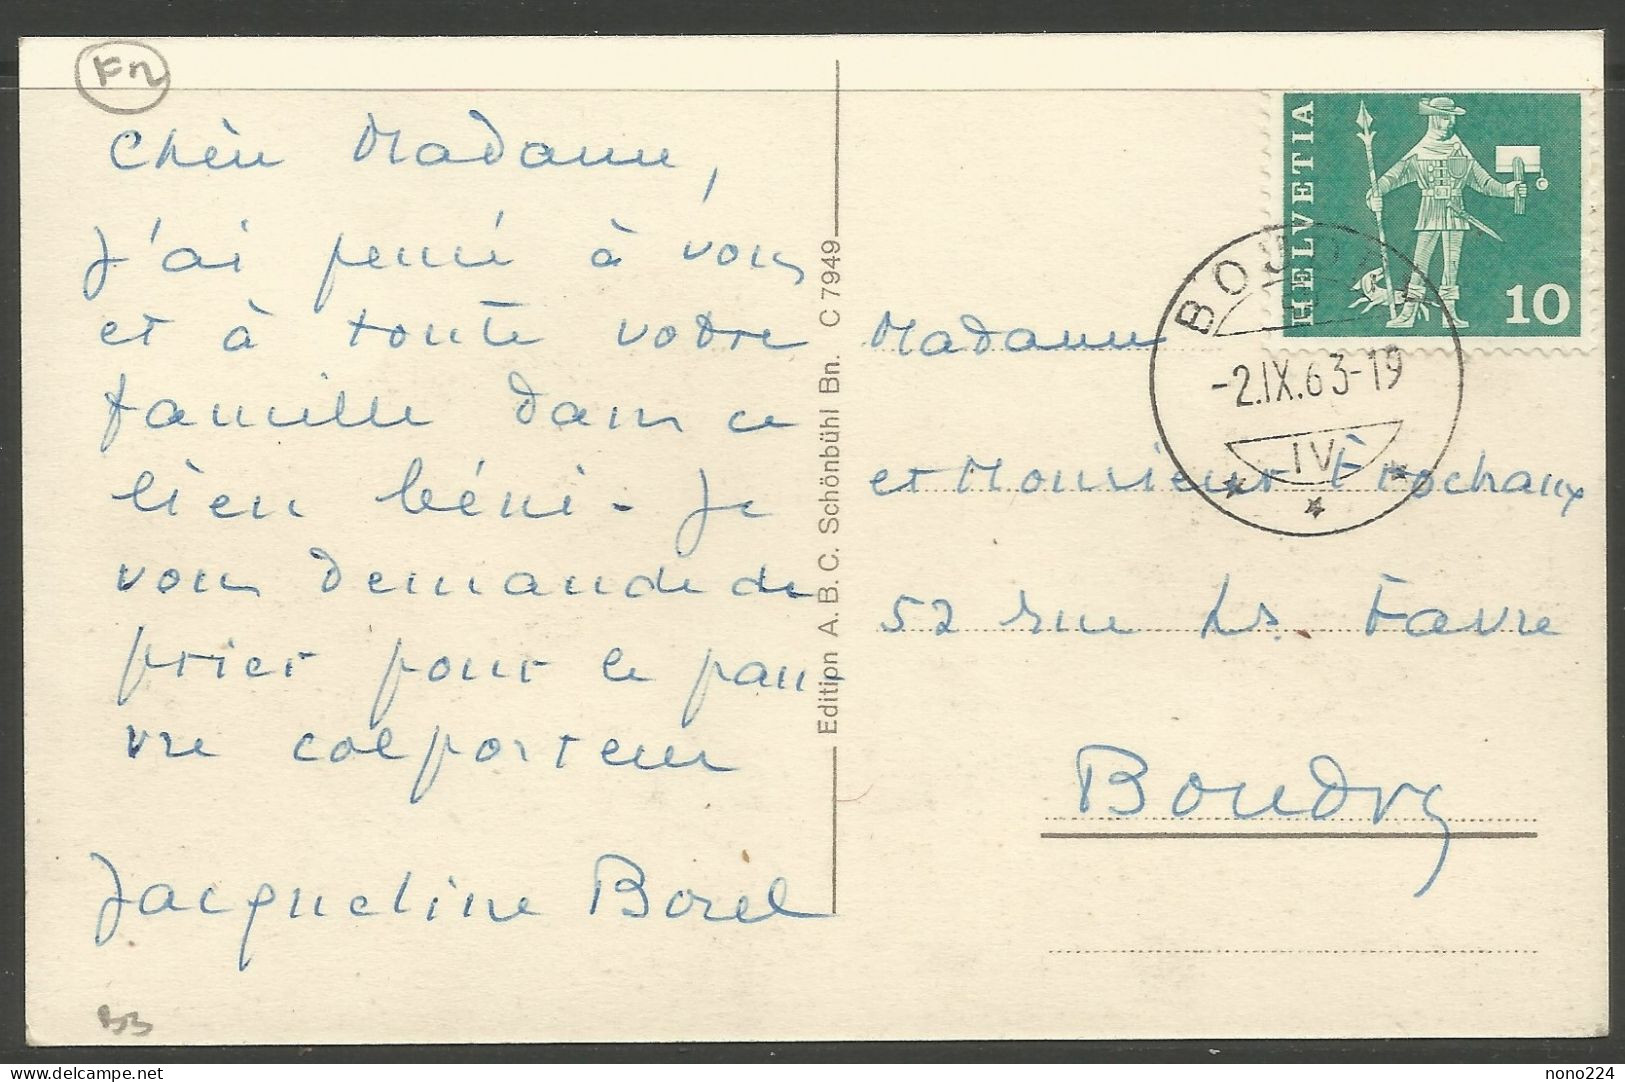 Fn
Chère Madame,
j'ai pensé à vous
et à toute votre
famille dans ce
lieu béni - Je
vous demande de
prier pour le pau-
vre colporteur
Jacqueline Borel
Edition A. B. C. Schönbühl Bn. C 7949
HELVETIA
10
BOUDRY
-2.IX.63-19
IV
Madame
et Monsieur Frochaux
52 rue Ls. Favre
Boudry
nono224